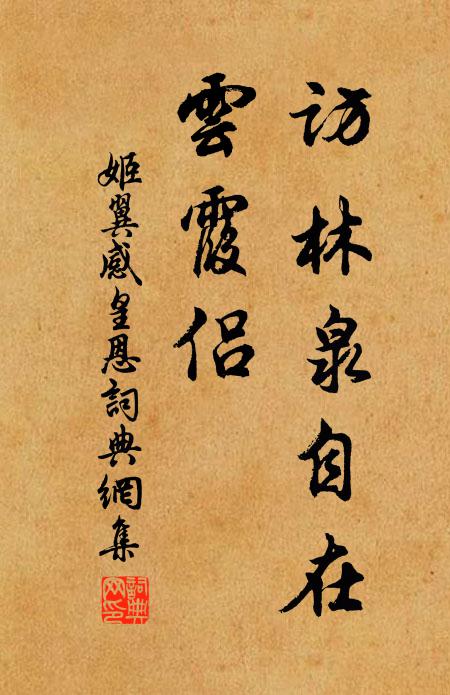 訪林泉自在
雲霞侶
姬翼感皇恩詞典網集
詞典
网印